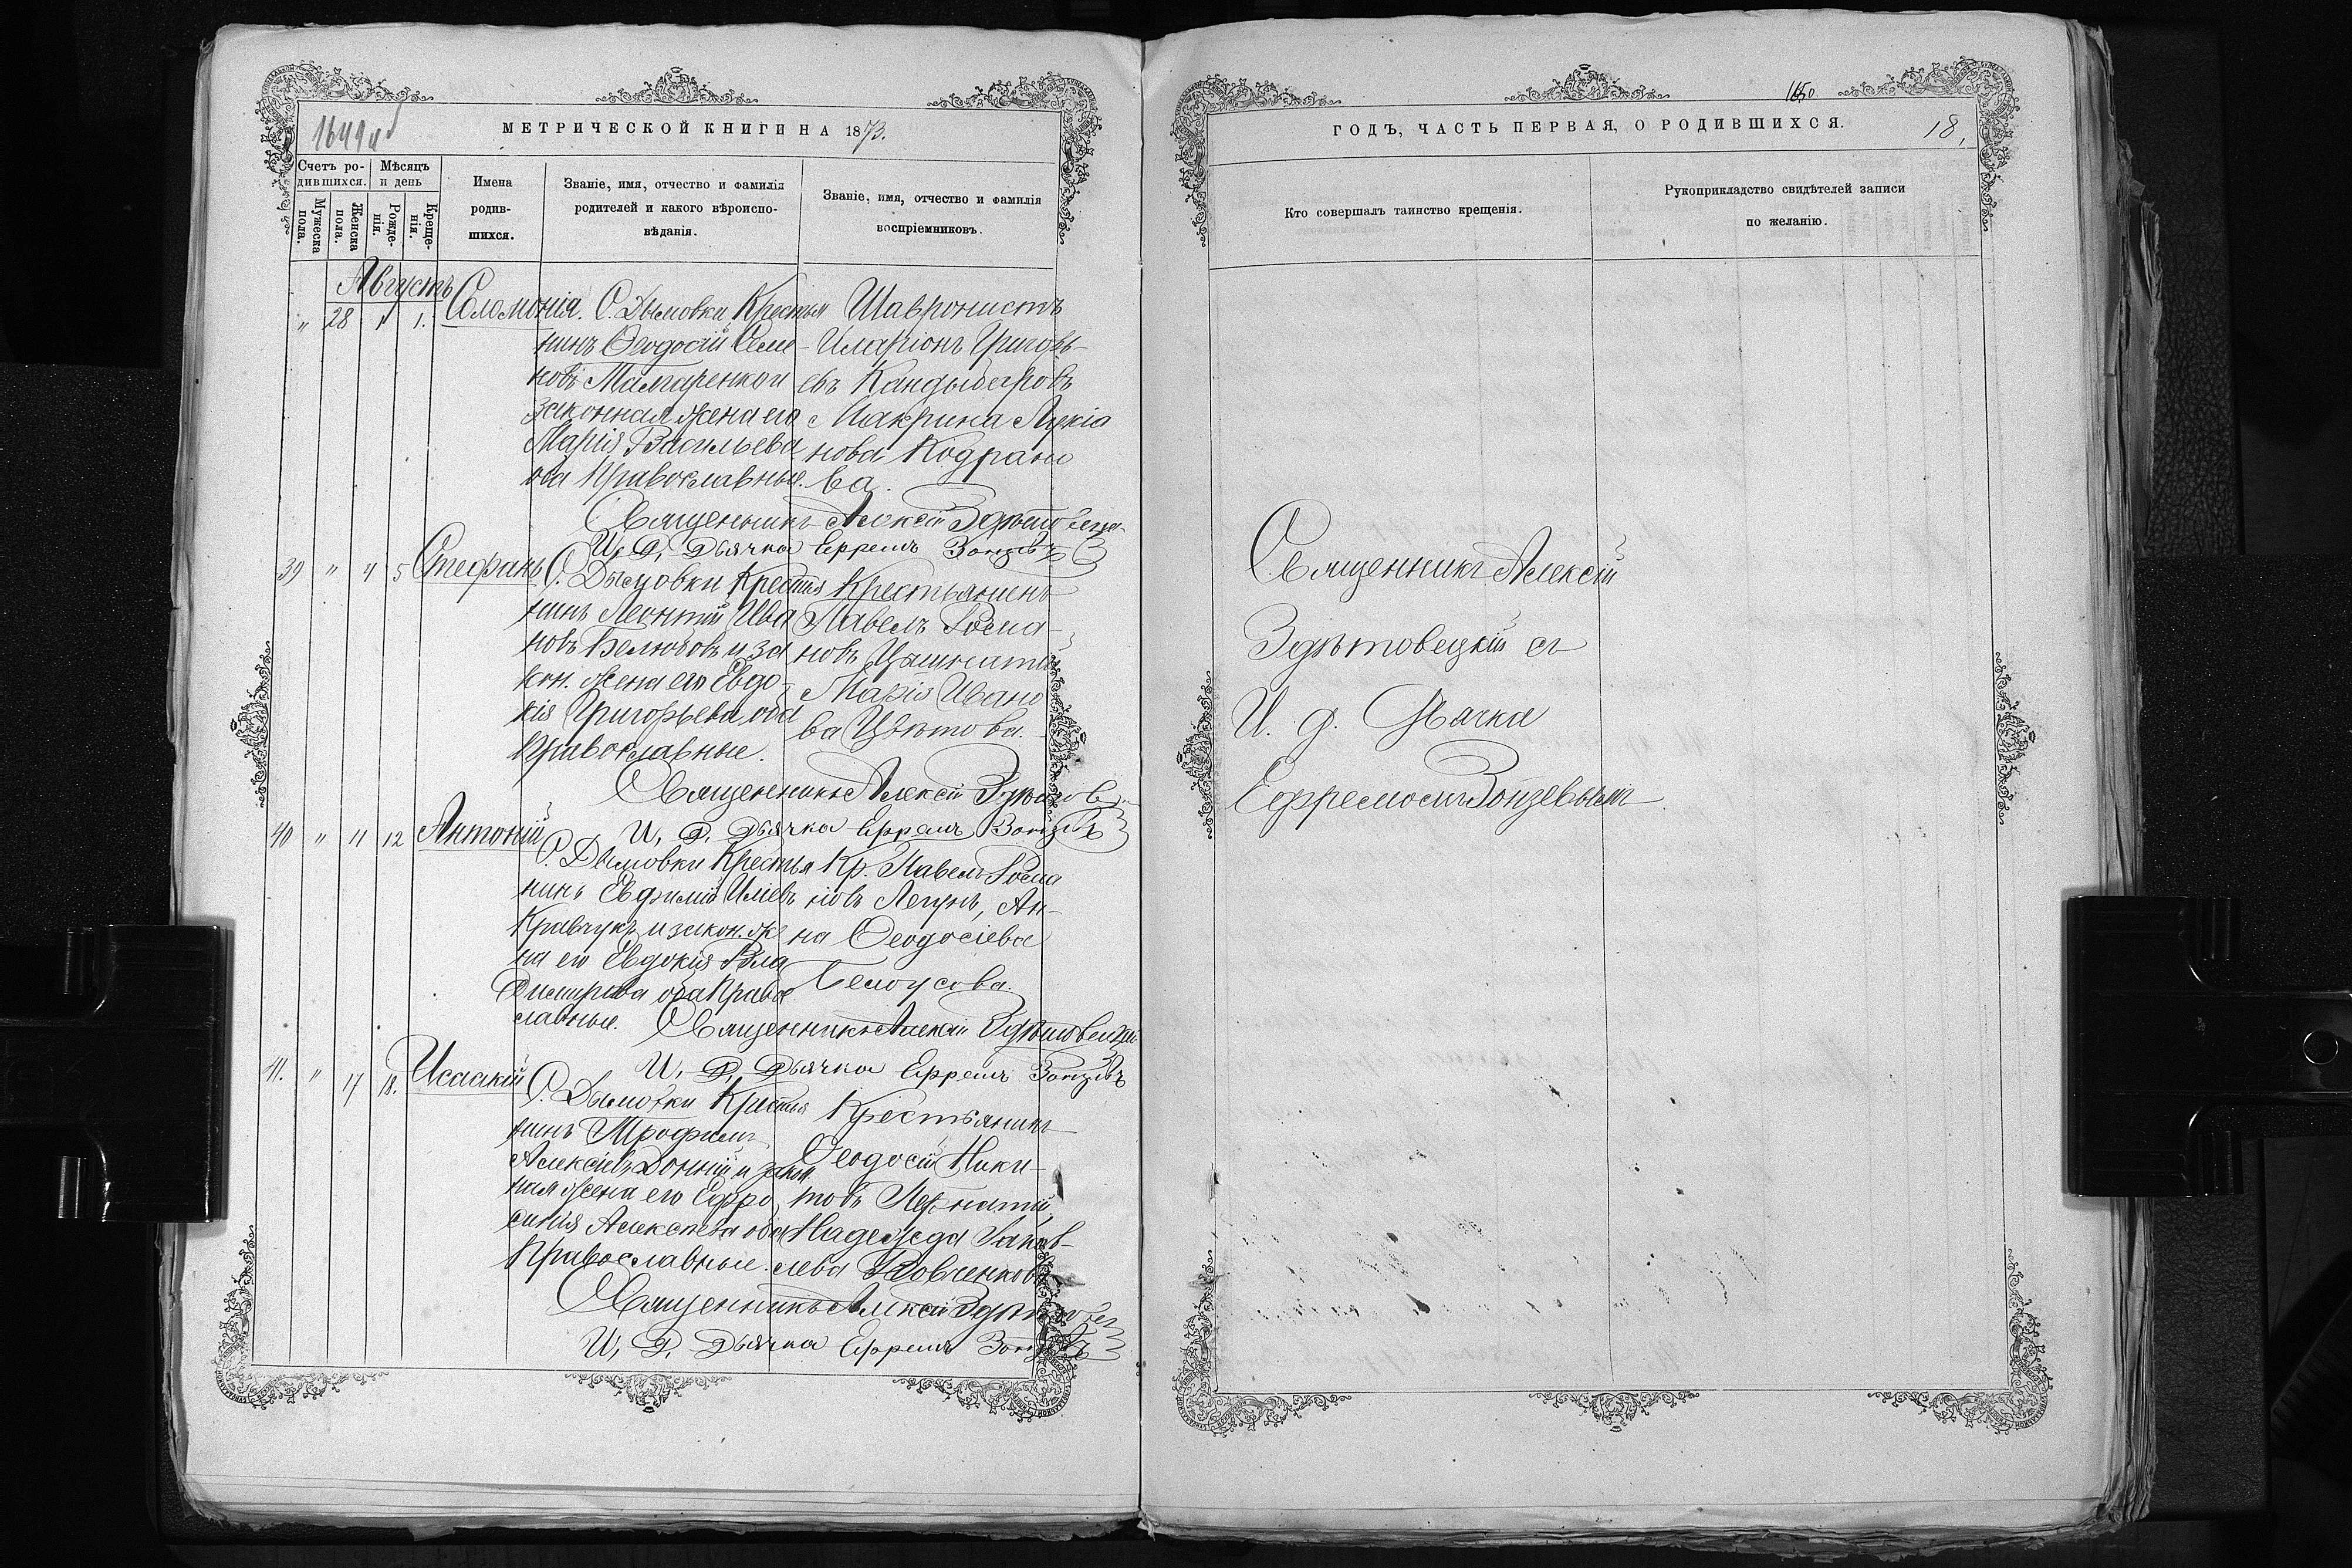 1649 об
МЕТРИЧЕСКОЙ КНИГИ НА 1873.
Счетъ родившихся.
Мѣсяцъ и день
Мужеска пола.
Женска пола.
Рожденія.
Крещенія.
Имена родившихся.
Званіе, имя, отчество и фамилія родителей и какого вѣроисповѣданія.
Званіе, имя, отчество и фамилія воспріемниковъ.
Августъ
" 28 1 1. Соломонія.
С. Дымовки Крестья
нинъ Ѳеодосій Семе-
новъ Мамаренко и
законная жена его
Марія Васильева
оба Православные.
Шавронистъ
Иларіонъ Григорь-
евъ Кандыбаровъ
Макрина Лукіа
нова Кодрано
ва.
Священникъ Алексій Здѣтовец
И. Д. Дьячка Ефремъ Зонзевъ
39 " 4 5 Стефанъ
С. Дымовки Крестья
нинъ Леонтій Ива
новъ Белюсовъ и за
кон. жена его Евдо-
кія Григорьева, оба
Православные.
Крестьянинъ
Павелъ Рома-
новъ
Марія Ивано
ва Цвѣтова.
Священникъ Алексій Здѣтовец
И. Д. Дьячка Ефремъ Зонзевъ
40 " 11 12 Антоній
С. Дымовки Крестья
нинъ Евфимій Иліевъ
Кравчукъ и закон. же
на его Евдокія
Димитріева оба Право
славные.
Кр. Павелъ Рома
новъ Легунъ, Ан-
на Ѳеодосіева
Белоусова.
Священникъ Алексій Здѣтовецкій
И. Д. Дьячка Ефремъ Зонзевъ
41. " 17 18. Исаакій
С. Дымовки Крестья
нинъ Трофимъ
Алексіевъ Донній и закон
ная жена его Ефро
синія Алексѣева оба
Православные.
Крестьянинъ
Ѳеодосій Ники-
товъ
Надежда Яков-
лева Вовченкова
Священникъ Алексій Здѣтовец
И. Д. Дьячка Ефремъ Зонзевъ
1650
ГОДЪ, ЧАСТЬ ПЕРВАЯ, О РОДИВШИХСЯ.
18.
Кто совершалъ таинство крещенія.
Рукоприкладство свидѣтелей записи по желанію.
Священникъ Алексій
Здѣтовецкій съ
И. д. Дьячка
Ефремомъ Зонзевымъ.